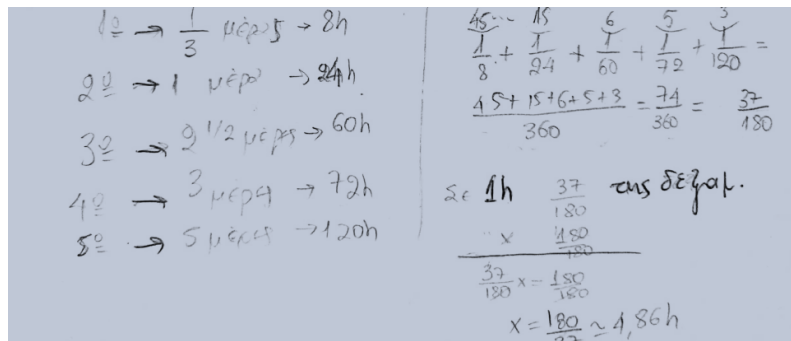 1º → 1/3 μέρος → 8h
2º → 1 μέρα → 24h
3º → 2 1/2 μέρες → 60h
4º → 3 μέρες → 72h
5º → 5 μέρες → 120h
45 15 6 5 3
1/8 + 1/24 + 1/60 + 1/72 + 1/120 =
45+15+6+5+3/360 = 74/360 = 37/180
Σε 1h 37/180 της δεξαμ.
x 180/180
37/180 x = 180/180
x = 180/37 ≃ 4,86h